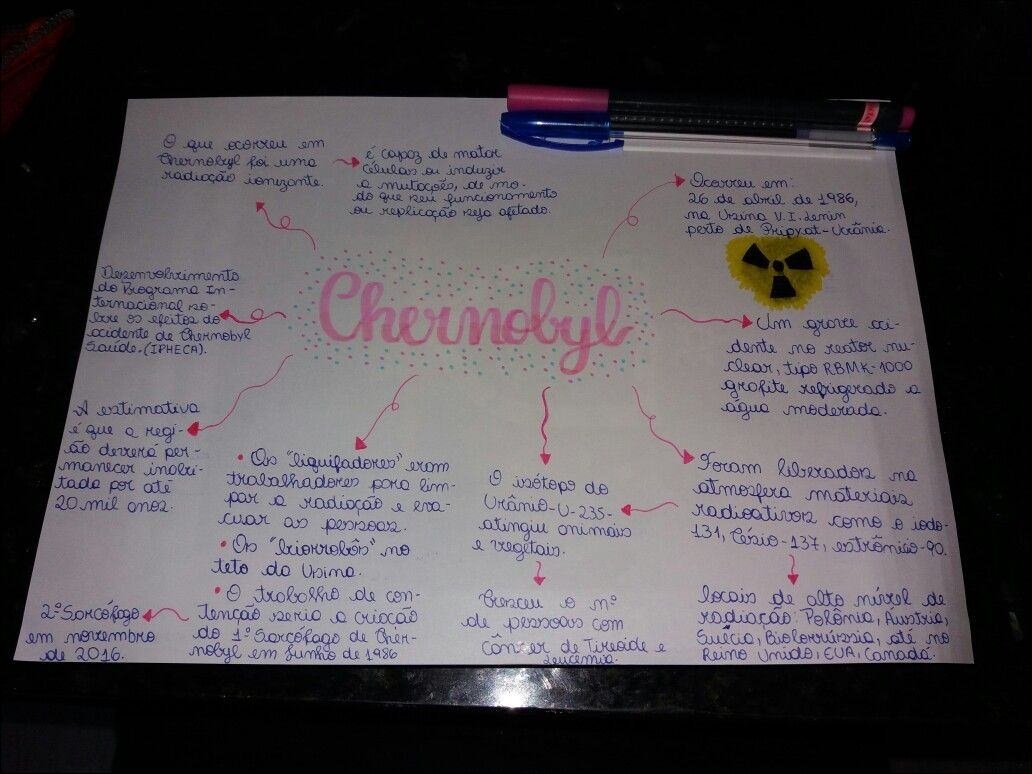 O que ocorreu em
Chernobyl foi uma
radiação ionizante.
é capaz de matar
células ou induzir
a mutações, de mo-
do que seu funcionamento
ou replicação seja afetado.
Ocorreu em:
26 de abril de 1986,
na Usina V.I. Lenin
perto de Pripyat-Ucrânia.
Chernobyl
Desenvolvimento
do Programa In-
ternacional so-
bre os efeitos do
acidente de Chernobyl
Saúde. (IPHECA).
Um grave aci-
dente no reator nu-
clear, tipo RBMK-1000
grafite refrigerado a
água moderada.
A estimativa
é que a regi-
ão deverá per-
manecer inabi-
tada por até
20 mil anos.
• Os "liquifadores" eram
trabalhadores para lim-
par a radiação e eva-
cuar as pessoas.
• Os "biorrobôs" no
teto da Usina.
• O trabalho de con-
tenção seria a criação
do 1° Sarcófago de Cher-
nobyl em Junho de 1986
2° Sarcófago
em novembro
de 2016.
O isótopo do
Urânio-U-235-
atingiu animais
e vegetais.
Cresceu o n°
de pessoas com
Câncer de Tireoide e
Leucemia.
Foram liberados na
atmosfera materiais
radioativos como o iodo-
131, Césio-137, estrôncio-90.
Locais de alto nível de
radiação: Polônia, Áustria,
Suécia, Bielorrússia, até no
Reino Unido, EUA, Canadá.